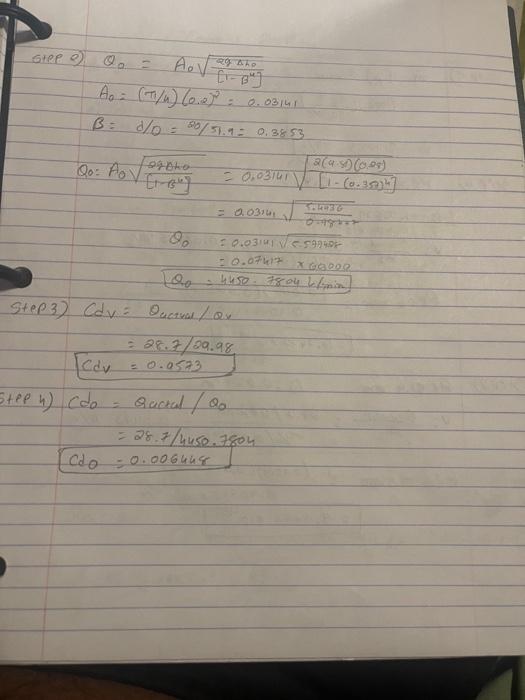 Step 2) Q₀ = A₀√(2gΔh₀/[1-β⁴])
A₀ = (π/4)(0.2)² = 0.03141
β = d/D = 20/51.9 = 0.3853
Q₀ = A₀√(2gΔh₀/[1-β⁴]) = 0.03141√(2(9.81)(0.28)/[1-(0.385)⁴])
= 0.03141√(5.4936/)
Q₀ = 0.03141√
= 0.07417 × 60,000
Q₀ = 4450.7804 L/min
Step 3) Cdv = Qactual/Qv
= 28.7/29.98
Cdv = 0.9573
Step 4) Cdo = Qactual/Q₀
= 28.7/4450.7804
Cdo = 0.006448